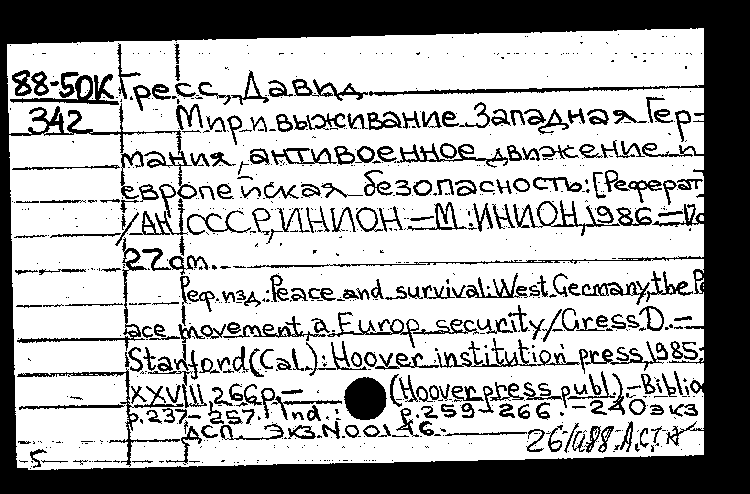 88-50К Гресс, Давид
342 Мир и выживание Западная Гер-
мания, антивоенное движение и
европейская безопасность: [Реферат]
/АН СССР, ИНИОН.—М.: ИНИОН, 1986.—
27 cm.
Реф. изд.: Peace and survival: West Germany, the Pe
ace movement, a. Europ. security/Gress D.—
Stanford (Cal.): Hoover institution press, 1985.-
XXVIII, 266 p.— (Hoover press publ.).—Biblio
p. 237-257. Ind.: p. 259-266.—240 экз
ДСП. Экз. N 00176.
5